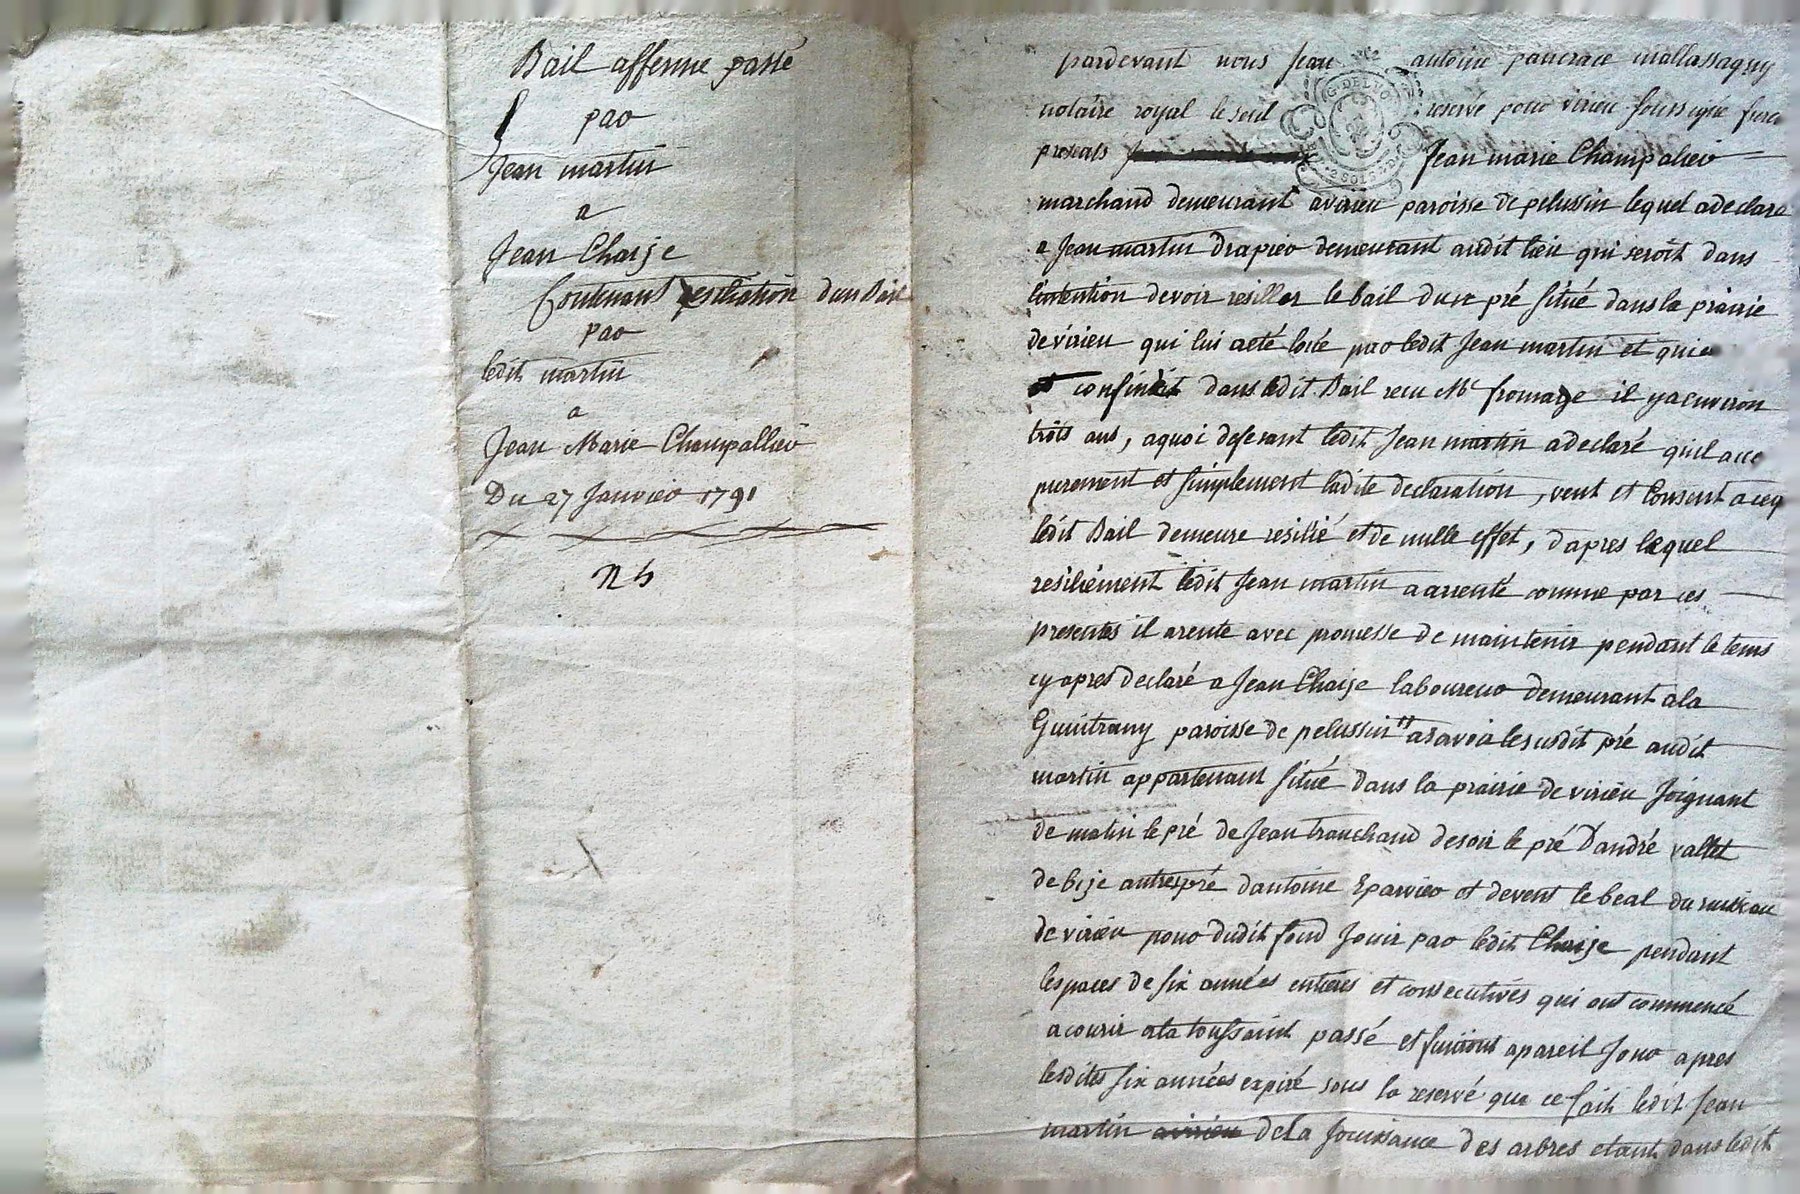 Bail afferme passé
par
Jean martin
a
Jean Chaize
Contenant resiliation dun Bail
par
ledit martin
a
Jean Marie Champallier
Du 27 Janvier 1791
n h
pardevant nous Jean antoine pancrace mallassagny
notaire royal le seul reservé pour virieu soussigné furent
presents Jean marie Champalier
marchand demeurant avirieu paroisse de pelussin lequel adeclaré
a Jean martin drapier demeurant audit lieu qui seroit dans
lintention devoir resiller le bail dun pré situé dans la prairie
de virieu qui lui aeté loué par ledit Jean martin et qui e
confiné dans ledit Bail recu Me fromage il yaenviron
trois ans, aquoi deferant ledit Jean martin adeclaré quil acce
purement et simplement ladite declaration, veut et Consent aceq
ledit Bail demeure resilié et de nulle effet, dapres lequel
resiliément ledit Jean martin aarrenté comme par ces
presentes il arente avec promesse de maintenir pendant le tems
cy apres declaré a Jean Chaize laboureur demeurant ala
Guintrany paroisse de pelussin asavoir lesusdit pré audit
martin appartenant situé dans la prairie de virieu Joignant
de matin le pré de Jean tranchand desoir le pré Dandré vallet
de bize autre pré dantoine Eparvier et devent le beal du ruisseau
de virieu pour dudit fond Jouir par ledit Chaize pendant
lespaces de six années entieres et consecutives qui ont commencé
acourir ala toussaint passé et finiront apareil Jour apres
lesdites six années expiré sous la reservé que ce fait ledit Jean
martin avirieu dela Jouissance des arbres etant dans ledit
G. DE LYON
2 SOLS